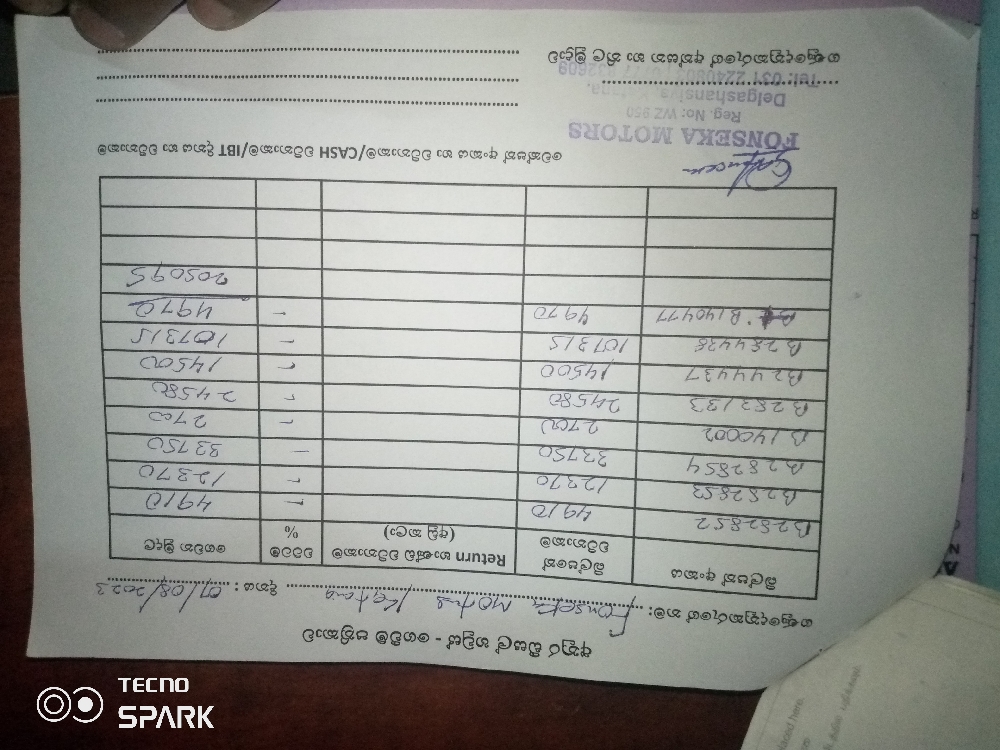 අනුර ටියුල් හවුස් - ගෙවීම් පත්‍රිකාව
ගණුදෙනුකරුගේ නම: Fonseka Motors / Katana දිනය : 01/08/2023
බිල්පත් අංකය බිල්පතේ වටිනාකම Return භාණ්ඩ වටිනාකම (අඩු කලා) වට්ටම් % ගෙවන මුදල
B282852 4910 - 4910
B282853 12370 - 12370
B282854 33750 - 33750
B140002 2700 - 2700
B283133 24580 - 24580
B244437 14500 - 14500
B284428 107315 - 107315
B140477 4970 - 4970
205095
චෙක්පත් අංකය හා වටිනාකම/CASH වටිනාකම/IBT දිනය හා වටිනාකම
FONSEKA MOTORS
Reg. No: WZ 950
Delgashansiya, Katana.
Tel: 031 2240803
ගණුදෙනුකරුගේ අත්සන හා නිල මුද්‍රාව
TECNO
SPARK